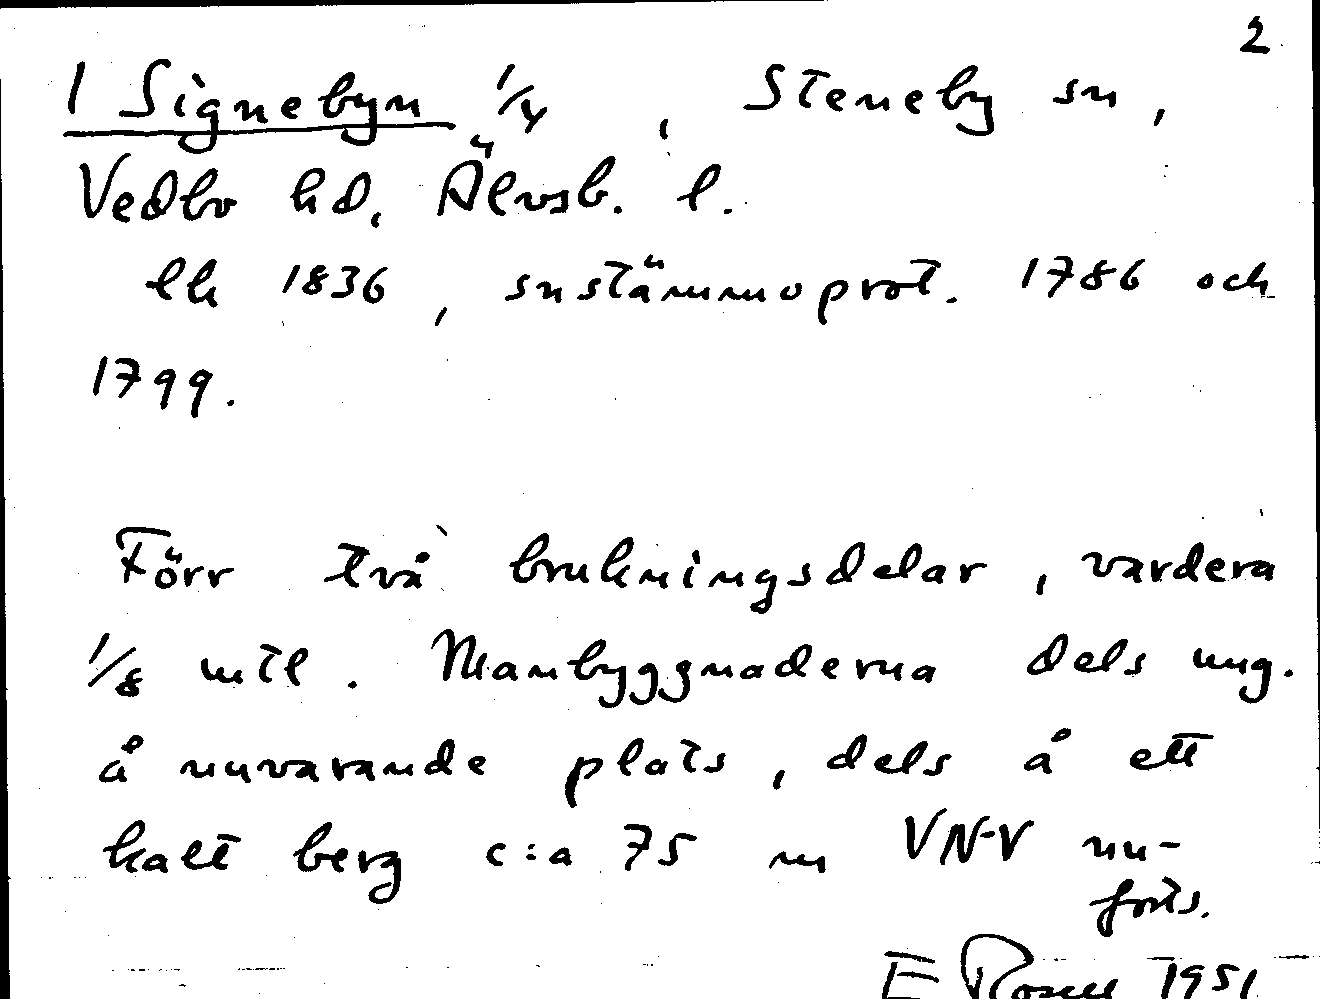 2
1 Signebyn 1/4, Steneby sn,
Vedbo hd, Älvsb. l.
lh 1836, snstämmoprot. 1786 och
1799.
Förr två brukningsdelar, vardera
1/8 mtl. Manbyggnaderna dels ung.
å nuvarande plats, dels å ett
kalt berg c:a 75 m VNV nu-
forts.
E 1951